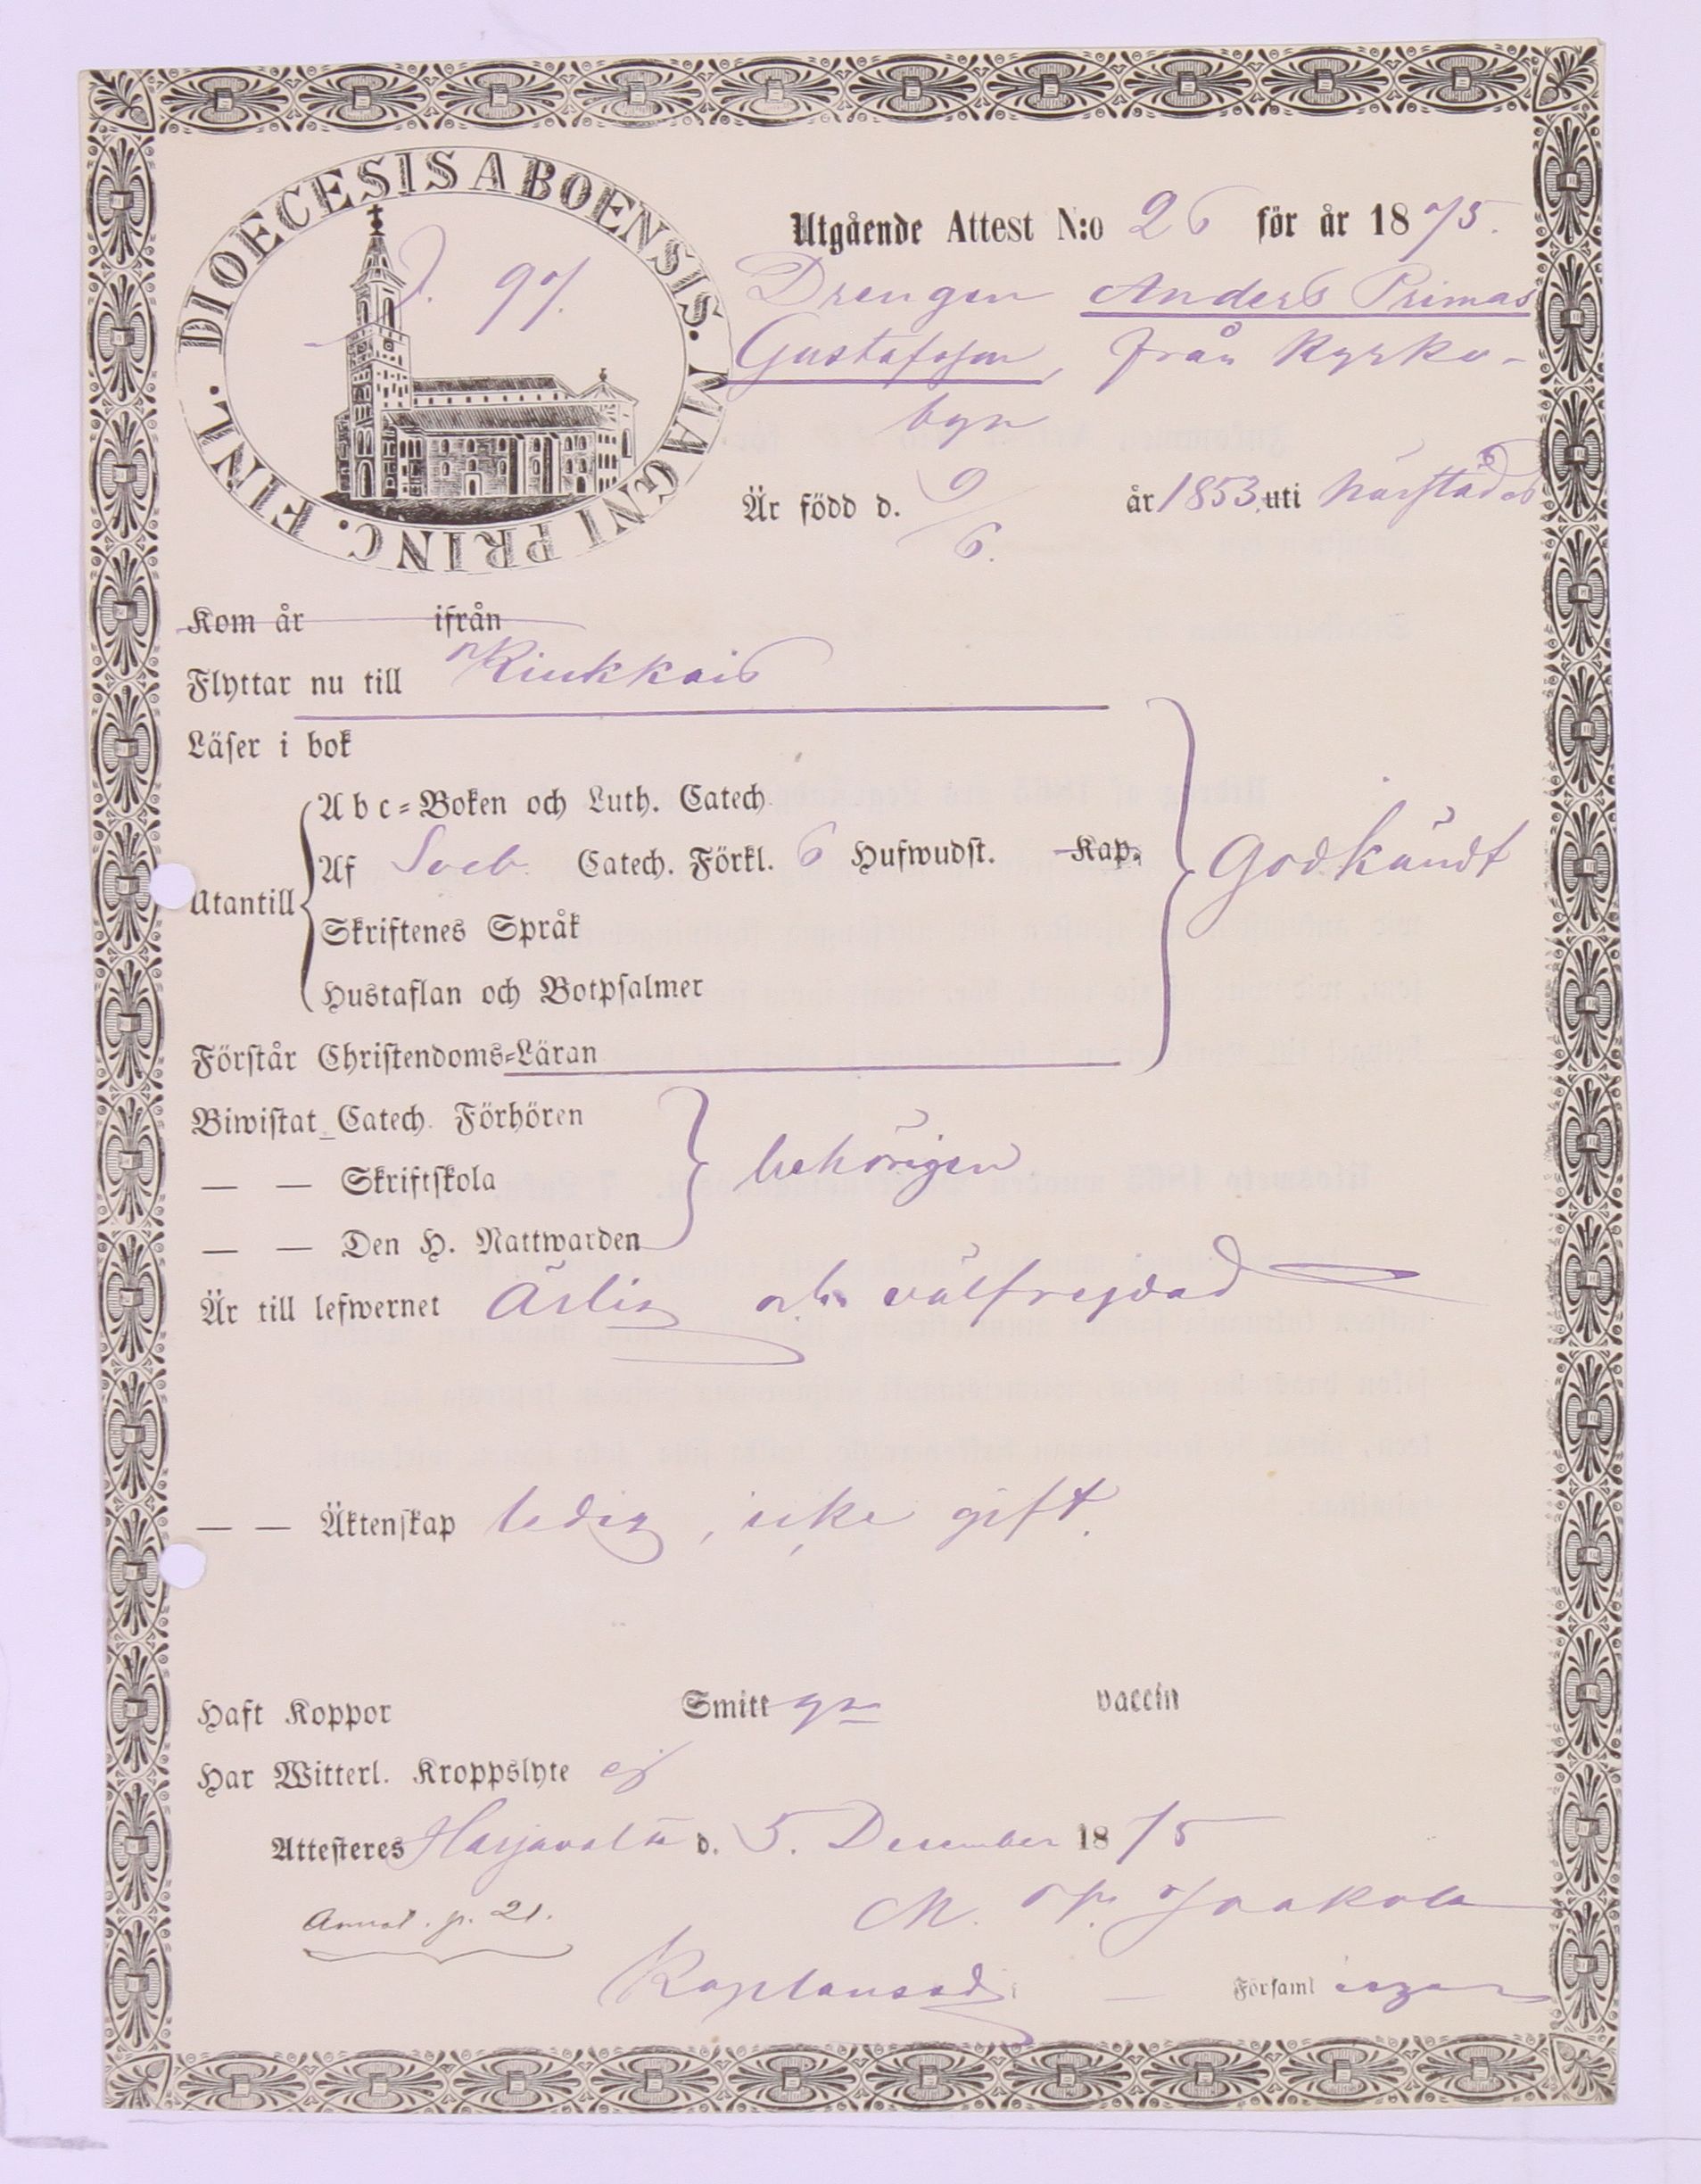 DIOECESIS ABOENSIS. MAGNI PRINC. FINL.
Utgående Attest N:o 26 för år 1875.
Drengen Anders Primas
Gustafsson, från Kyrko-
byn
Är född d. 9/6. år 1853 uti härstädes
Kom år ifrån
Flyttar nu till Kiukkais
Läser i bok
Abc-Boken och Luth. Catech.
Af Sveb. Catech. Förkl. 6 Hufwudst. Kap.
Utantill
Godkändt
Skriftenes Språk
Hustaflan och Botpsalmer
Förstår Christendoms-Läran
Biwistat Catech. Förhören
— — Skriftskola behörigen
— — Den H. Nattwarden
Är till lefwernet Ärlig och välfrejdad
— — Äktenskap ledig, icke gift.
Haft Koppor Smitt vaccin
Har Witterl. Kroppslyte ej
Attesteras Harjavalta d. 5. December 1875
Annot. p. 21. M. Jaakola
Kaplansadj: — Församl